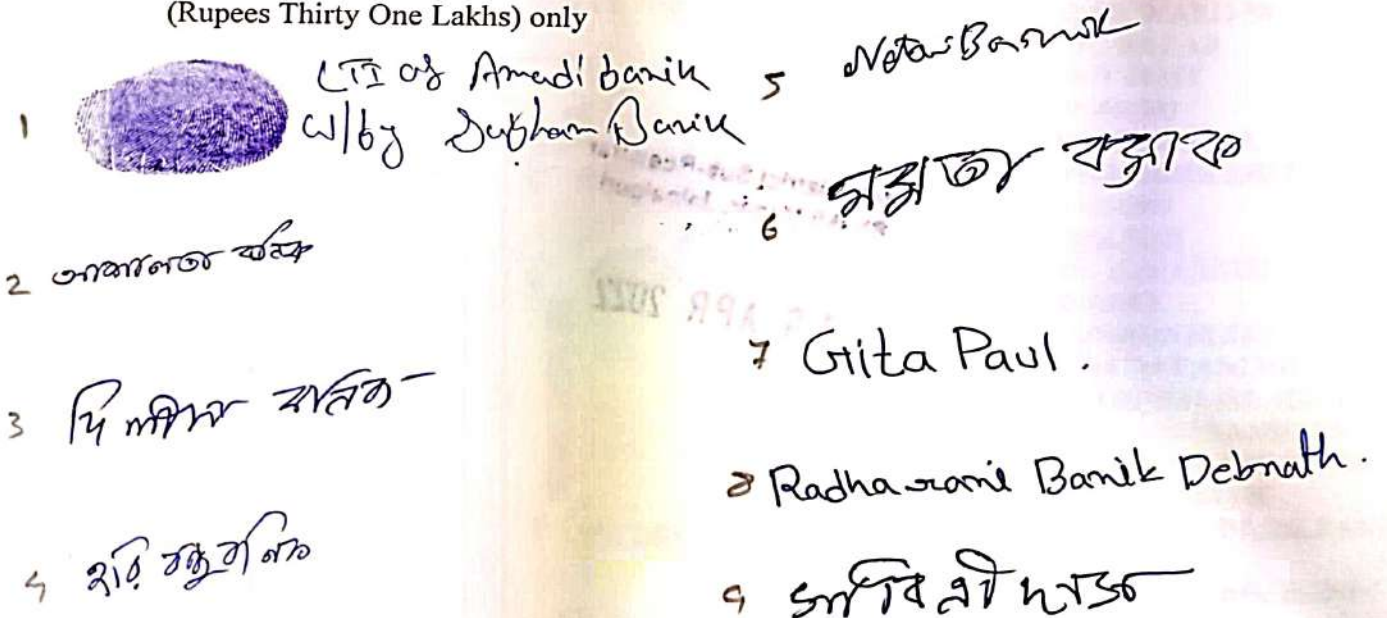 (Rupees Thirty One Lakhs) only
1 LTI of Amadi banik
W/by Subham Banik
2 আশালতা বনিক
3 দিলীপ বনিক
4 হরি বন্ধু বনিক
5 Netai Basmik
6 মমতা বসাক
7 Gita Paul.
8 Radharani Banik Debnath.
9 সাবিত্রী দত্ত